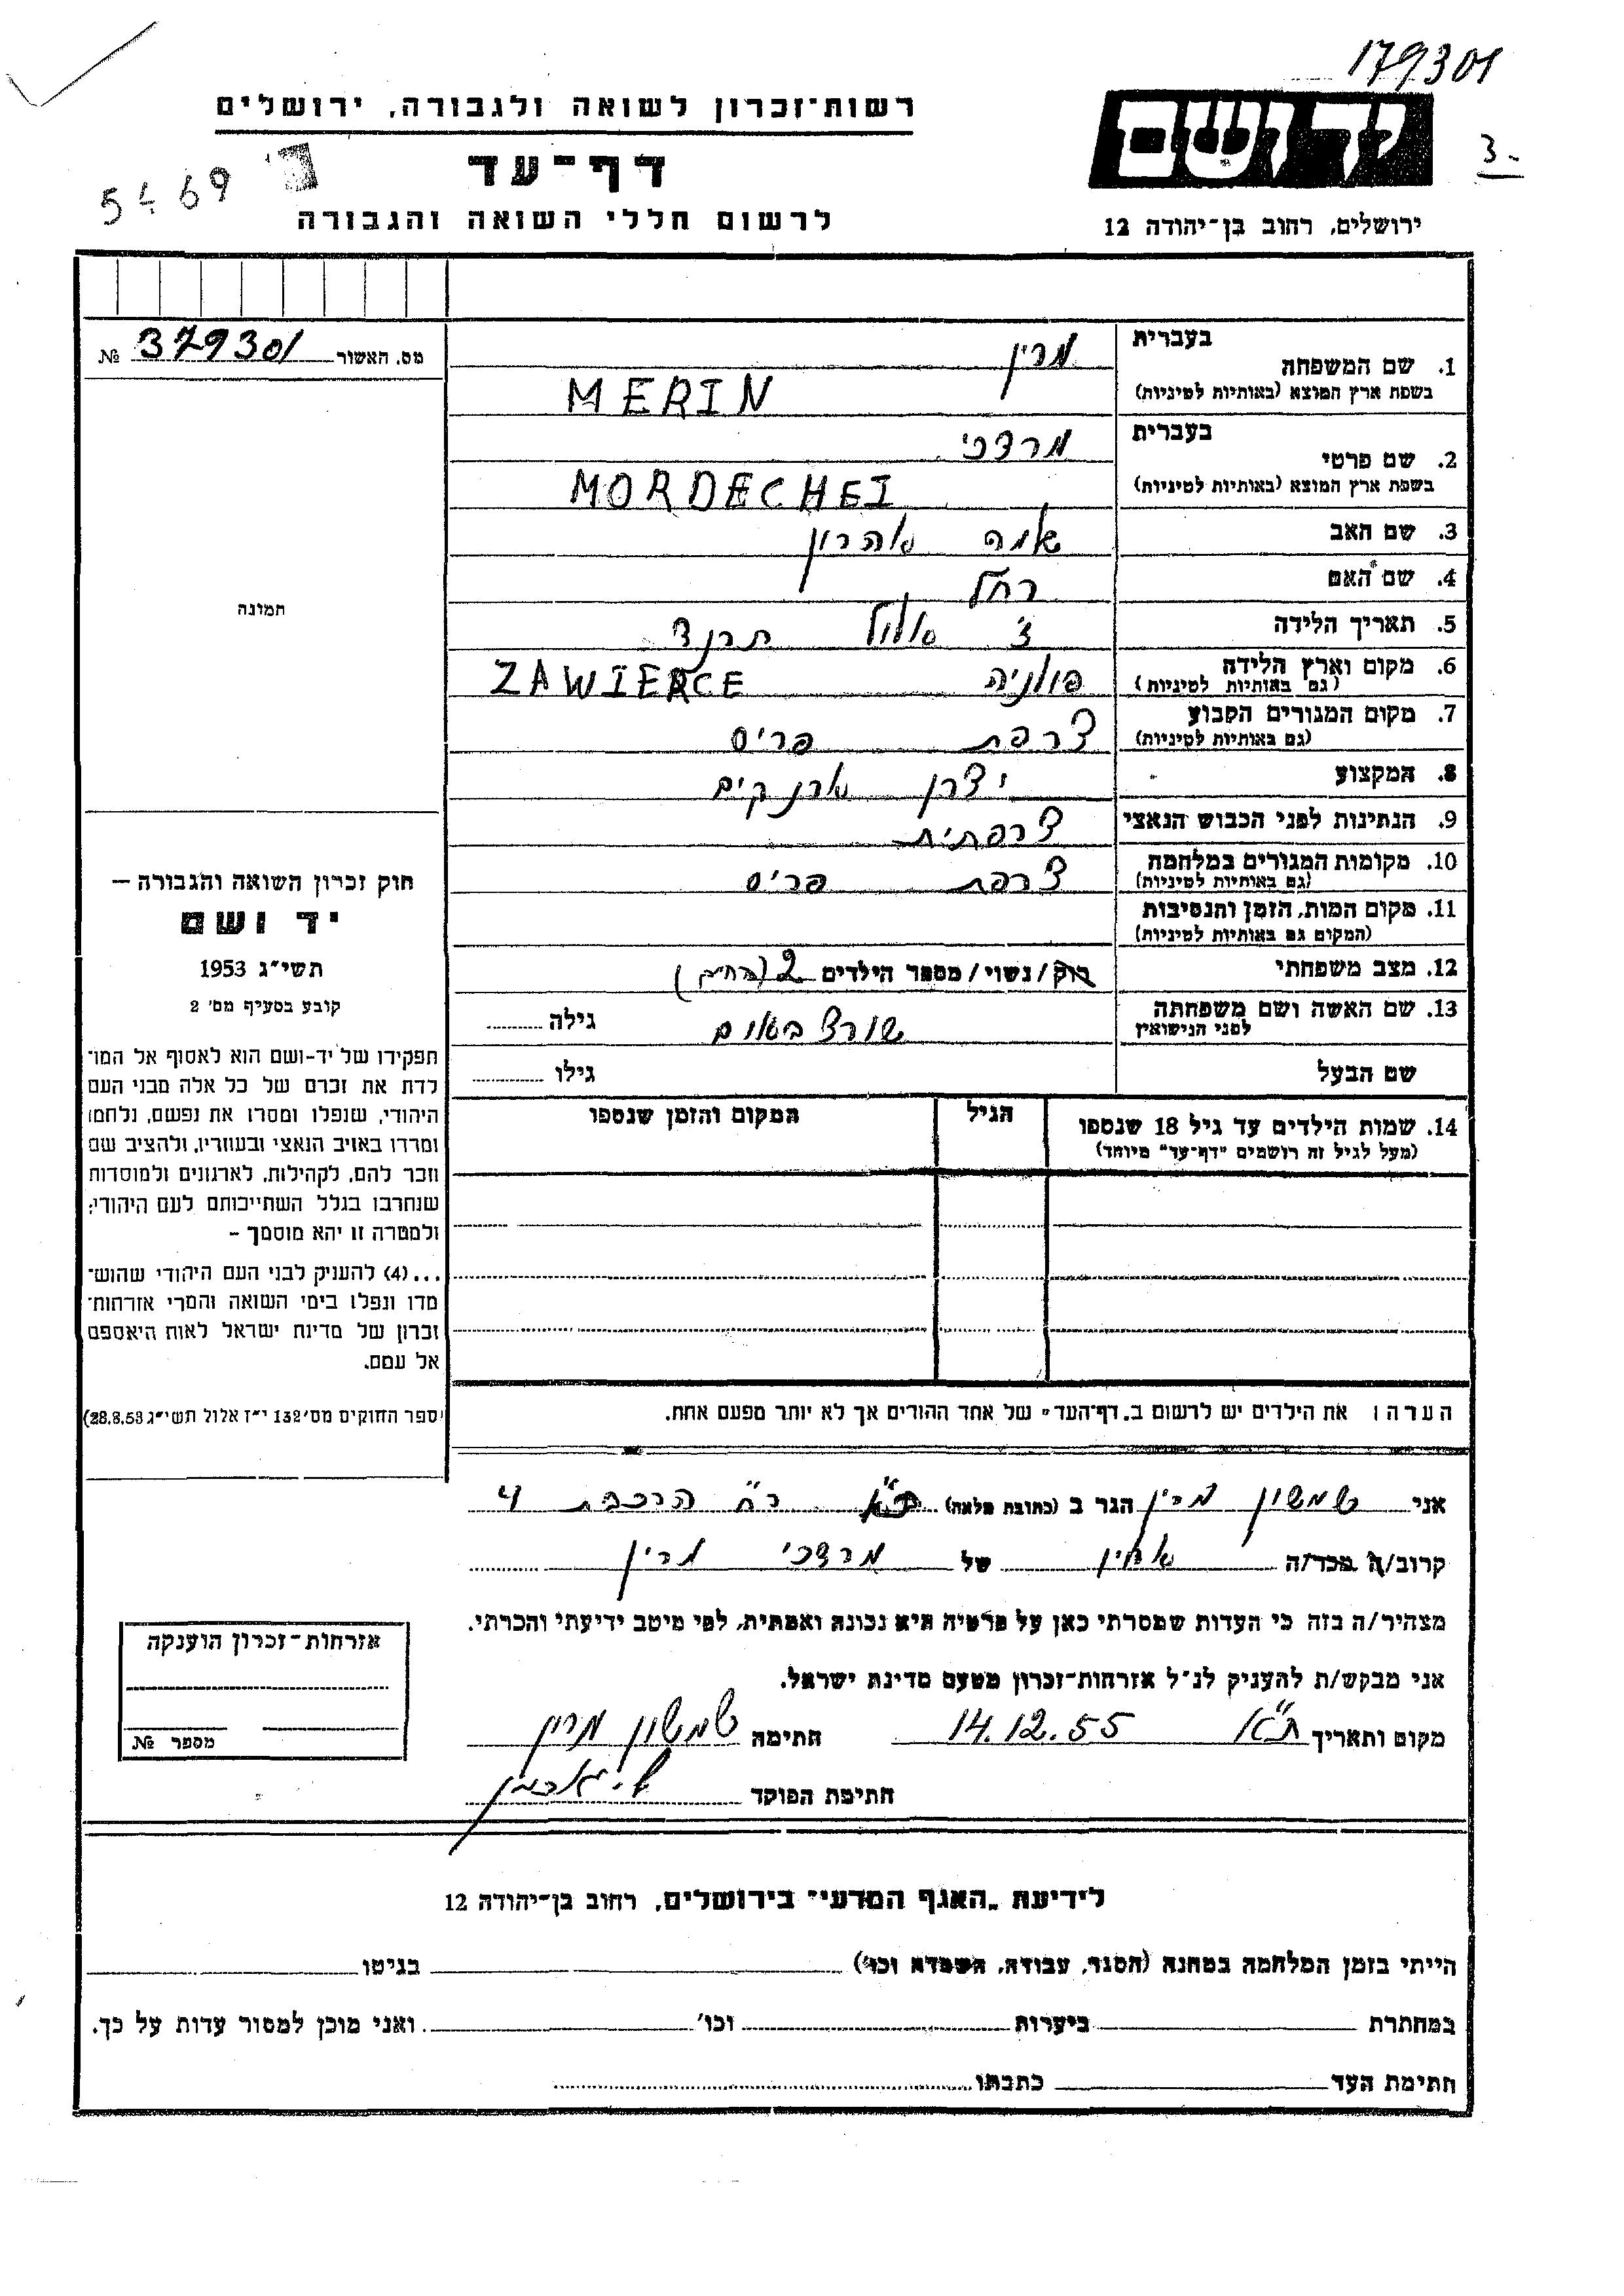 179301
רשות־זכרון לשואה ולגבורה, ירושלים
יד ושם
3-
דף־עד
5469
לרשום חללי השואה והגבורה
ירושלים, רחוב בן־יהודה 12
מס. האשור 379301 №
בעברית
1. שם המשפחה מרין
בשפת ארץ המוצא (באותיות לטיניות) MERIN
בעברית
2. שם פרטי מרדכי
בשפת ארץ המוצא (באותיות לטיניות) MORDECHEI
3. שם האב אהרון
4. שם האם רחל
תמונה
5. תאריך הלידה אלול תרנד
6. מקום וארץ הלידה פולניה ZAWIERCE
(גם באותיות לטיניות)
7. מקום המגורים הקבוע צרפת פריס
(גם באותיות לטיניות)
8. המקצוע יצרן ארנקים
9. הנתינות לפני הכבוש הנאצי צרפתית
10. מקומות המגורים במלחמה צרפת פריס
(גם באותיות לטיניות)
11. מקום המות, הזמן והנסיבות
(המקום גם באותיות לטיניות)
12. מצב משפחתי רוק/נשוי/מספר הילדים 2
13. שם האשה ושם משפחתה שורצבאום גילה
לפני הנישואין
שם הבעל גילו
חוק זכרון השואה והגבורה —
יד ושם
תשי״ג 1953
קובע בסעיף מס׳ 2
תפקידו של יד-ושם הוא לאסוף אל המו־
לדת את זכרם של כל אלה מבני העם
היהודי, שנפלו ומסרו את נפשם, נלחמו
ומרדו באויב הנאצי ובעוזריו, ולהציב שם
וזכר להם, לקהילות, לארגונים ולמוסדות
שנחרבו בגלל השתייכותם לעם היהודי;
ולמטרה זו יהא מוסמך -
...(4) להעניק לבני העם היהודי שהוש־
מדו ונפלו בימי השואה והמרי אזרחות־
זכרון של מדינת ישראל לאות היאספם
אל עמם.
(ספר החוקים מס׳ 132 י״ז אלול תשי״ג 28.8.53)
14. שמות הילדים עד גיל 18 שנספו הגיל המקום והזמן שנספו
(מעל לגיל זה רושמים "דף-עד" מיוחד)
הערה: את הילדים יש לרשום ב„דף־העד" של אחד ההורים אך לא יותר מפעם אחת.
אני שמשון מרין הגר ב (כתובת מלאה) ת״א רח׳ הרכבת 4
קרוב/ה מכר/ה אחין של מרדכי מרין
מצהיר/ה בזה כי העדות שמסרתי כאן על פרטיה היא נכונה ואמתית, לפי מיטב ידיעתי והכרתי.
אני מבקש/ת להעניק לנ״ל אזרחות־זכרון מטעם מדינת ישראל.
מקום ותאריך ת״א 14.12.55 חתימה שמשון מרין
חתימת הפוקד
אזרחות־זכרון הוענקה
מספר №
לידיעת „האגף המדעי" בירושלים, רחוב בן־יהודה 12
הייתי בזמן המלחמה במחנה (הסגר, עבודה, השמדה וכו׳) בגיטו
במחתרת ביערות וכו׳ ואני מוכן למסור עדות על כך.
חתימת העד כתבתו